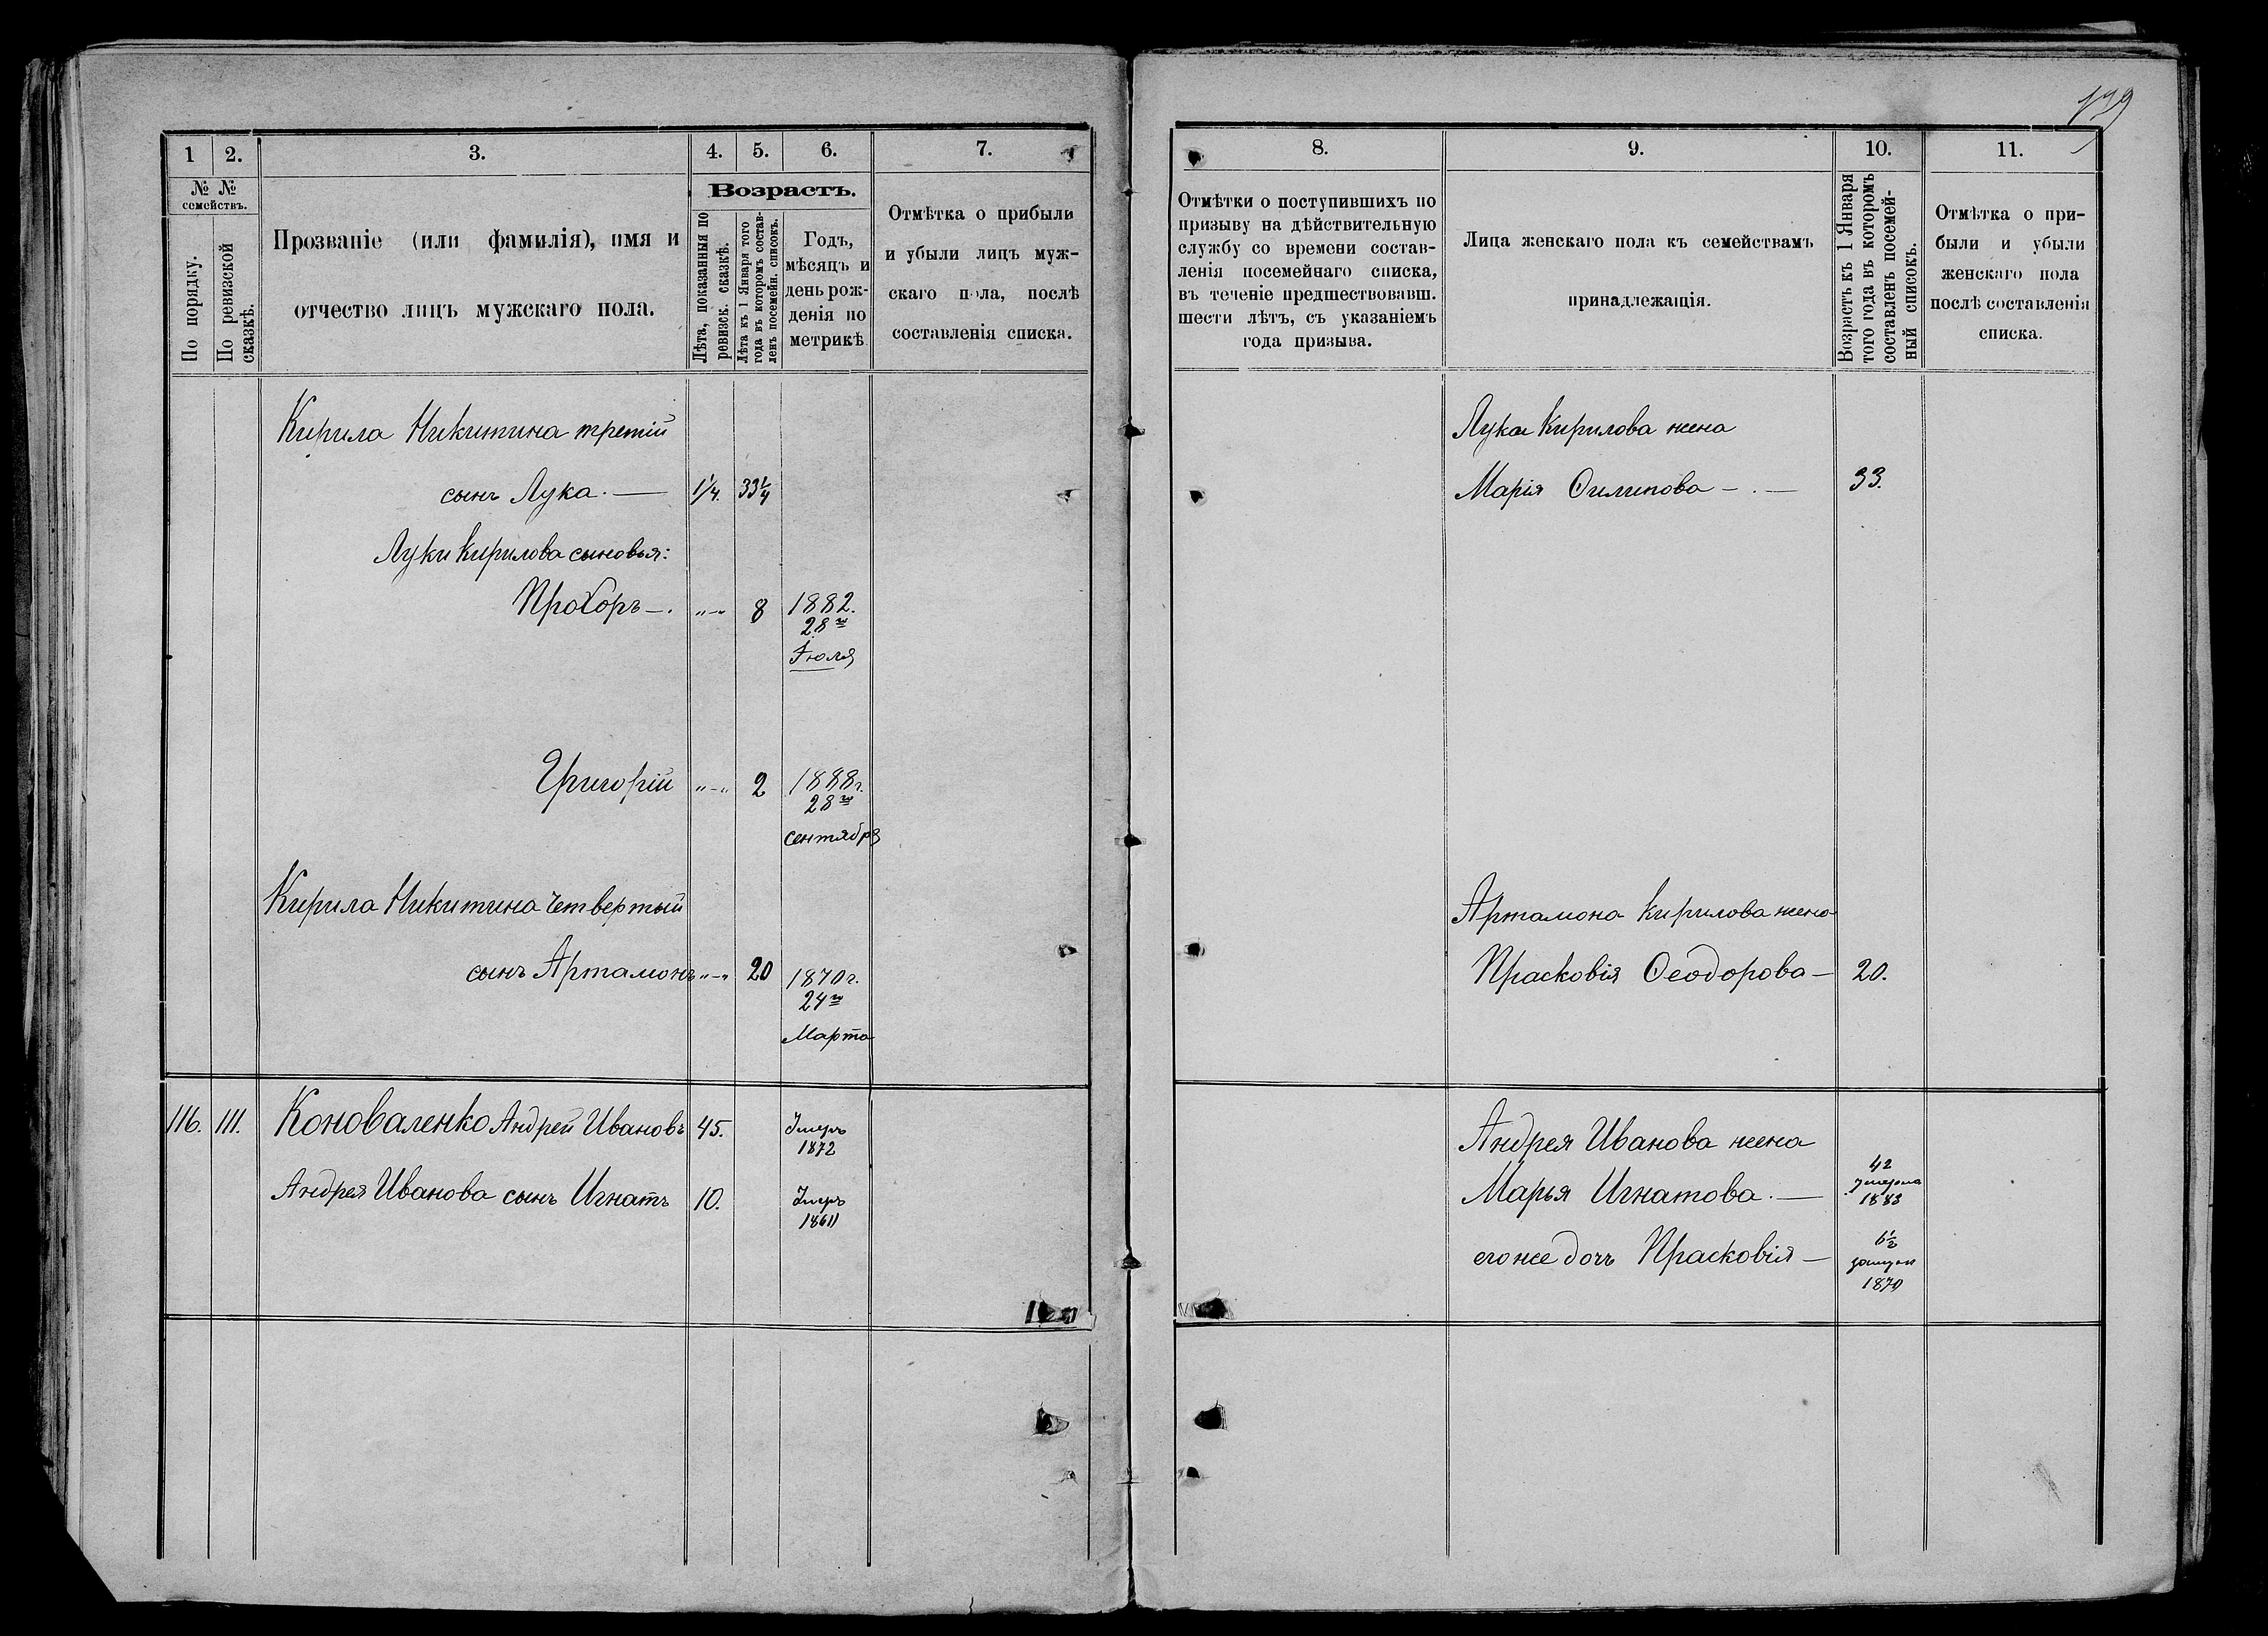 1
2.
3.
4.
5.
6.
7.
№ №
семействъ.
По порядку.
По ревизской
сказкѣ.
Прозваніе (или фамилія), имя и
отчество лицъ мужскаго пола.
Возрастъ.
Лѣта, показанныя по
ревизск. сказкѣ.
Лѣта къ 1 Января того
года въ которомъ состав-
ленъ посемейн. списокъ.
Годъ,
мѣсяцъ и
день рож-
денія по
метрикѣ
Отмѣтка о прибыли
и убыли лицъ муж-
скаго пола, послѣ
составленія списка.
Кирила Никитина третій
сынъ Лука. — 1¼. 33¼
Луки Кирилова сыновья:
Прохоръ —. „—„ 8 1882.
28го
Іюля
Григорій „—„ 2 1888г.
28го
сентября
Кирила Никитина четвертый
сынъ Артамонъ „—„ 20 1870г.
24го
Марта
116. 111. Коноваленко Андрей Ивановъ 45. Умеръ
1872
Андрея Иванова сынъ Игнатъ 10. Умеръ
1861
8.
9.
10.
11.
Отмѣтки о поступившихъ по
призыву на дѣйствительную
службу со времени состав-
ленія посемейнаго списка,
въ теченіе предшествовавш.
шести лѣтъ, съ указаніемъ
года призыва.
Лица женскаго пола къ семействамъ
принадлежащія.
Возрастъ къ 1 Января
того года въ которомъ
составленъ посемей-
ный списокъ.
Отмѣтка о при-
были и убыли
женскаго пола
послѣ составленія
списка.
Лука Кирилова жена
Марія Филипова — . — 33.
Артамона Кирилова жена
Прасковія Феодорова — 20.
Андрея Иванова жена
42
Марья Игнатова. — умерла
1883
6½
его же дочь Прасковія — замужъ
1870